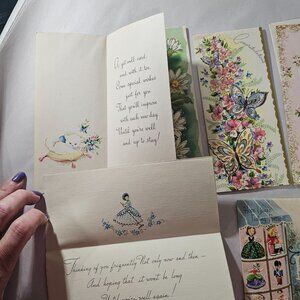 A get well card
and with it too,
Some special wishes
just for you
That you'll improve
with each new day
Until you're well
and up to stay!
Thinking of you frequently Not only now and then —
And hoping that it won't be long
well again.